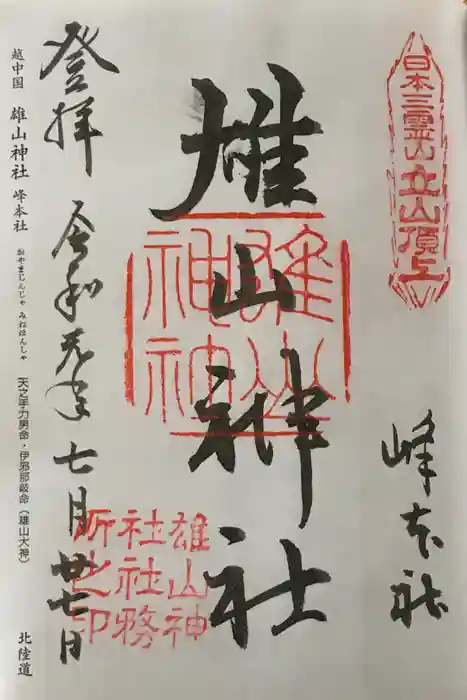 日本三霊山立山頂上
峰本社
雄山神社
雄山
神神
雄山神
社社務
所之印
登拝 令和元年七月廿七日
越中国 雄山神社 峰本社 おやまじんじゃ みねほんしゃ 天之手力男命・伊邪那岐命（雄山大神） 北陸道